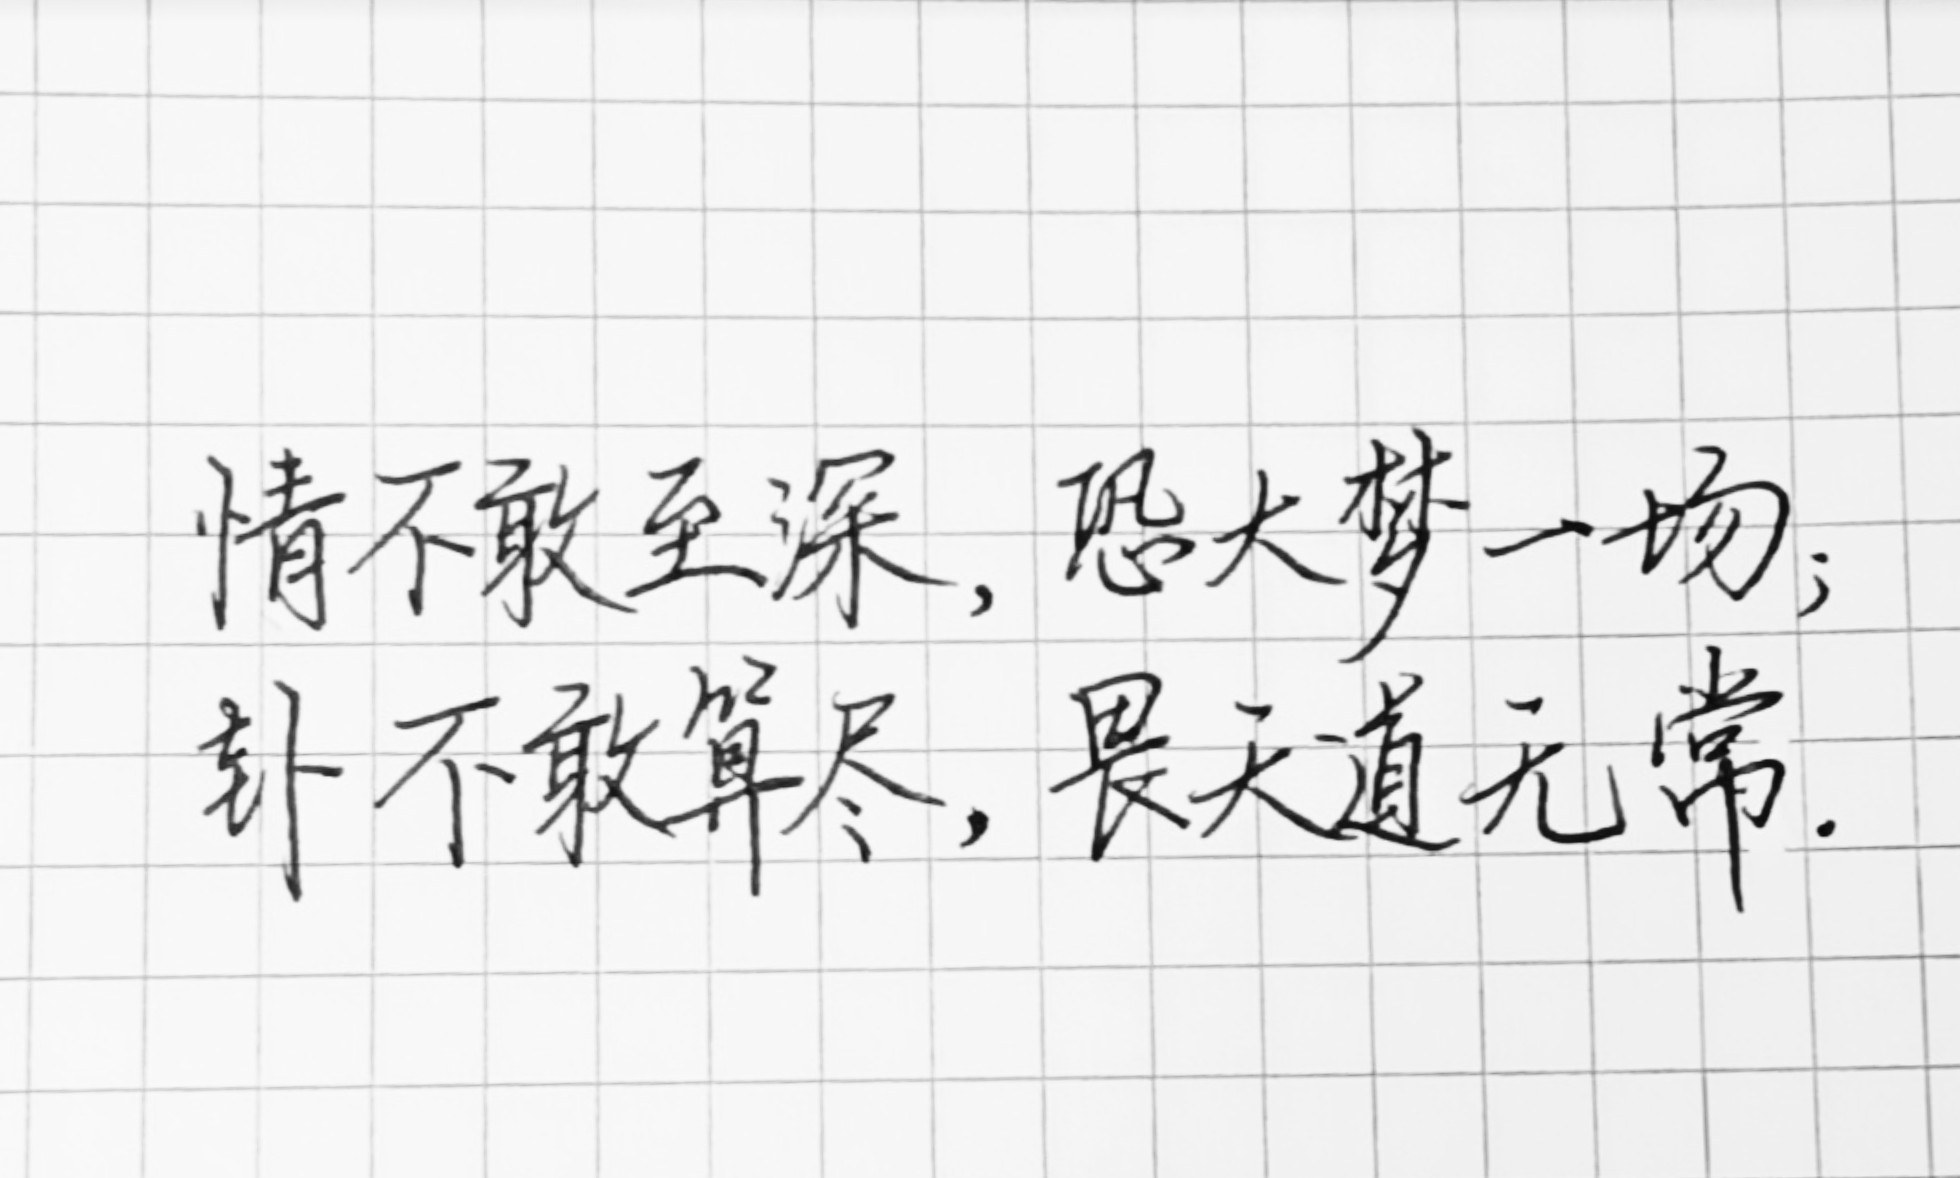 情不敢至深，恐大梦一场；
卦不敢算尽，畏天道无常.